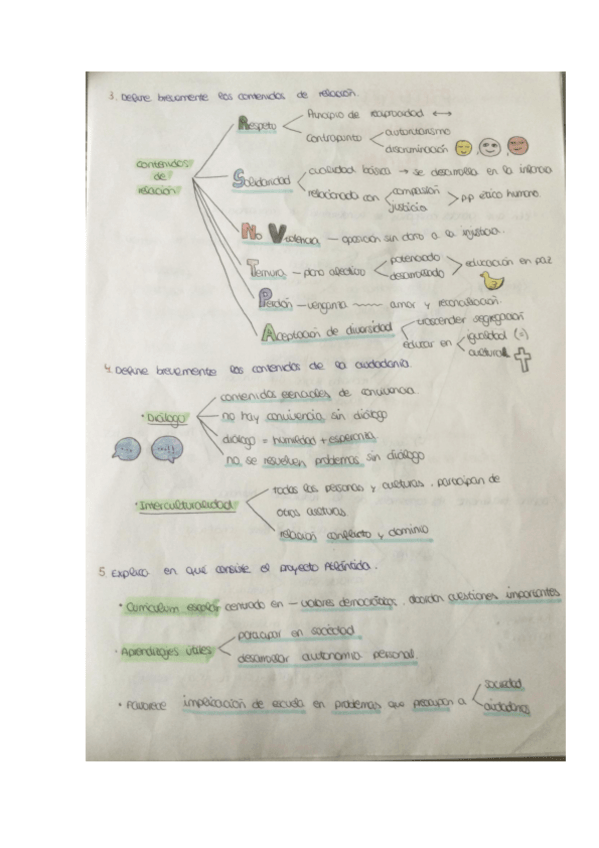 3. Define brevemente los contenidos de relación.
Respeto
Principio de reciprocidad ↔
Contrapunto
autoritarismo
discriminación
contenidos de relación
Solidaridad
cualidad básica → se desarrolla en la infancia
relacionado con
compasión
justicia
pp ético humano
No Violencia — oposición sin daño a la injusticia.
Ternura — plano afectivo
potenciado
desarrollado
educación en paz
Perdón — venganza ~~~~ amor y reconciliación
Aceptación de diversidad
trascender segregación
educar en
igualdad (=)
cultural
4. Define brevemente los contenidos de la ciudadanía.
• Diálogo
contenidos esenciales de convivencia.
no hay convivencia sin diálogo
diálogo = humildad + esperanza
no se resuelven problemas sin diálogo
• Interculturalidad
todas las personas y culturas, participan de
otras culturas
relaciones conflicto y dominio
5. Explica en qué consiste el proyecto Atlántida.
• Curriculum escolar centrado en — valores democráticos, abordan cuestiones importantes
• Aprendizajes útiles
participar en sociedad
desarrollar autonomía personal.
• Favorece implicación de escuela en problemas que preocupan a
sociedad
ciudadanos